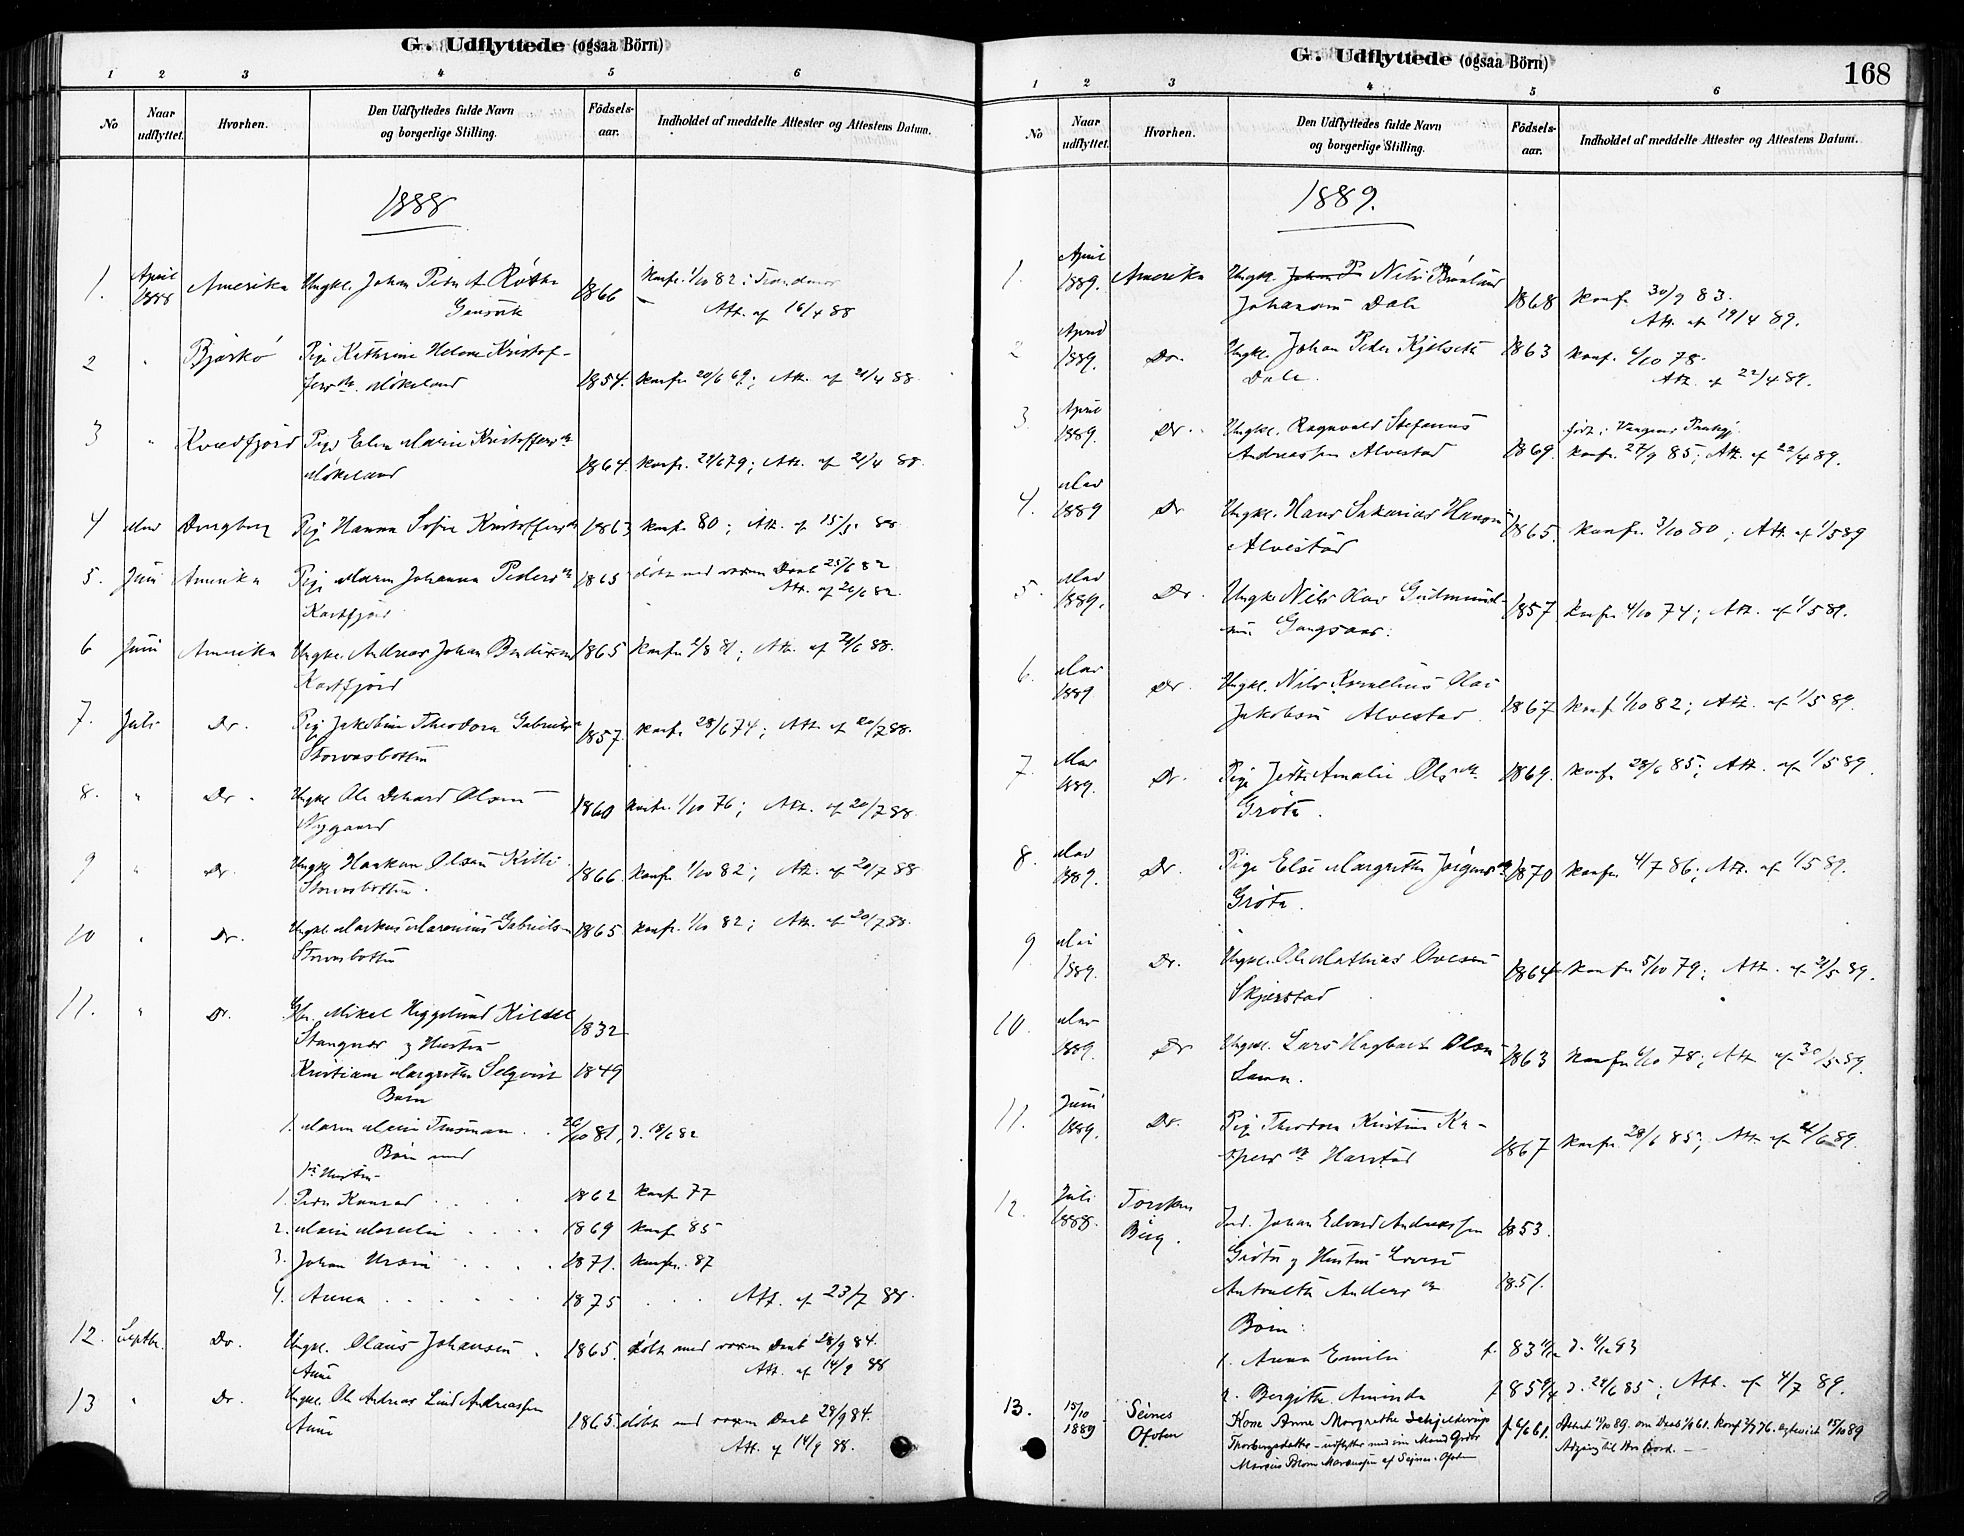 G. Udflyttede (ogsaa Börn)
1 2 3 4 5 6
No
Naar udflyttet.
Hvorhen.
Den Udflyttedes fulde Navn og borgerlige Stilling.
Födsels-aar.
Indholdet af meddelte Attester og Attestens Datum.
1888
1. April 1888 Amerika Ungkl. Johan Peder A. 1866 Konf. 1/10 82 i Trondenæs
Att. af 16/4 88
2 " Bjarkö Pige Kathrine Helene Kristof-
fersdtr. Mökeland 1854. Konf. 20/6 69; Att. af 21/4 88.
3 " Kvædfjord Pige Elen Marie Kristoffersdtr
Mökeland 1864. Konf. 29/6 79; Att. af 21/4 88.
4 Mai Pige Hanna Sofie Kristoffersdtr 1863 Konf. 80; Att. af 15/5 88
5. Juni Amerika Pige Maren Johanna Pedersdtr 1865 döbt med voxen Daab 25/6 82
Kastfjord Att. af 21/6 82.
6 Juni Amerika Ungkl. Andreas Johan 1865 Konf. 2/8 81; Att. af 21/6 88.
Kastfjord
7. Juli Do. Pige Jakobine Theodora Gabrielsd 1857. Konf. 28/6 74; Att. af 20/7 88.
Storvasbotten
8. " Do. Ungkl Ole Edvard Olsen 1860 Konf. 1/10 76; Att. af 20/7 88.
Nygaard
9 " Do. Ungkl. Haakon Olsen 1866 Konf. 1/10 82; Att. af 20/7 88
Storvasbotten.
10 " Do. Ungkl. Markus Marenius Gabriels- 1865 Konf. 1/10 82; Att. af 20/7 88.
Storvasbotten
11. " Do. Mikal Heggelund Kildal
Stangnæs og Hustru 1832
Kristiane Margrethe 1849
Börn
1. Maren Marie 26/10 81, d. 18/6 82
Börn med
1ste Hustru
1. Peder Konrad 1862 Konf. 77
2. Marie 1869 Konf. 85
3. Johan 1871. Konf. 87
4. Anna 1875 Att. af 23/7 88.
12. Septbr. Do. Ungkl. Olaus Johansen 1865. döbt med voxen Daab 28/9 84.
Aune Att. af 14/9 88
13 " Do. Ungkl. Ole Andreas Lind Andreassen
Aune 1865 döbt med voxen Daab 28/9 84.
Att. af 14/9 88.
G. Udflyttede (ogsaa Börn)
168
1 2 3 4 5 6
No
Naar udflyttet.
Hvorhen.
Den Udflyttedes fulde Navn og borgerlige Stilling.
Födsels-aar.
Indholdet af meddelte Attester og Attestens Datum.
1889.
1. April 1889. Amerika Ungkl. Johan P Nils
Johansen Dale 1868 Konf. 30/9 83.
Att. af 19/4 89.
2 April 1889. Do. Ungkl. Johan Peder Kjelseth 1863 Konf. 6/10 78.
Dale. Att. af 22/4 89.
3 April 1889. Do. Ungkl. Ragnvald Stefanus
Andreassen Alvestad 1869. födt i Præstgj.
Konf. 27/9 85; Att. af 22/4 89.
4. Mai 1889 Do Ungkl. Hans Sakarias Hansen
Alvestad 1865. Konf. 3/10 80; Att. af 1/5 89
5. Mai 1889. Do. Ungkl. Nils Olai Gudmund-
sen Gangsaas. 1857 Konf. 4/10 74; Att. af 1/5 89.
6. Mai 1889 Do. Ungkl. Nils Kornelius Olai
Jakobsen Alvestad. 1867 Konf. 1/10 82; Att. af 1/5 89.
7. Mai 1889. Do. Pige Amalie Olsdtr. 1869. Konf. 28/6 85; Att. af 1/5 89.
Gröta.
8. Mai 1889. Do. Pige Else Margrethe Jörgensdtr 1870 Konf. 4/7 86; Att. af 1/5 89.
Gröta.
9 Mai 1889. Do. Ungkl. Ole Mathias Ovesen 1864 Konf. 5/10 79; Att. af 21/5 89.
Skjærstad
10. Mai 1889. Do Ungkl. Lars Hagbart Olsen 1863 Konf. 6/10 78; Att. af 30/5 89.
11. Juni 1889. Do. Pige Theodora Kristine Ka-
spersdtr Harstad 1867 Konf. 28/6 85; Att. af 21/6 89.
12. Juli 1888. Torsken Berg. Ind. Johan Edvard Andreassen 1853.
Gröta og Hustru Lovise
Antonette Andersdtr 1851.
Börn:
1. Anna Emilie f. 83 11/12 d. 4/12 93
2. Bergithe Aminda f. 85 9/4 d. 24/6 85; Att. af 4/7 89.
13. 15/10 1889 Seines Ofoten Kone Anne Margrethe Schjelderup
Thorbergsdatter – udflytter med sin Mand
af Seines i Ofoten f. 6/6 61. Attest 11/10 89. om Daab 61. Konf. 2/7 76. 15/10 89
Adgang til Hrs Bord. —